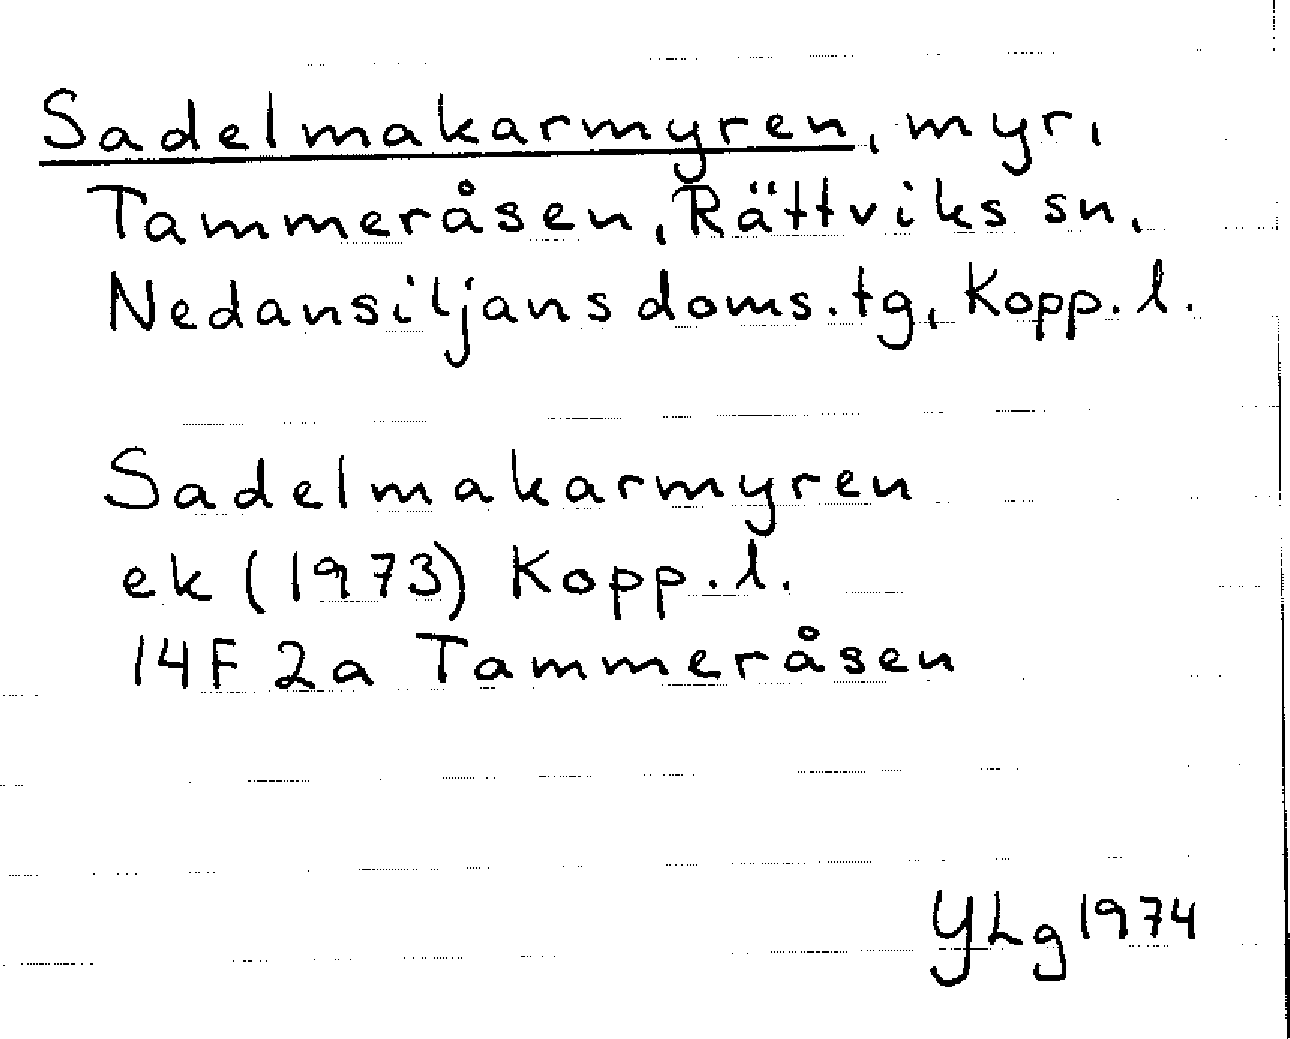 Sadelmakarmyren, myr,
Tammeråsen, Rättviks sn,
Nedansiljans doms.tg, Kopp.l.
Sadelmakarmyren
ek (1973) Kopp.l.
14F 2a Tammeråsen
YLg 1974